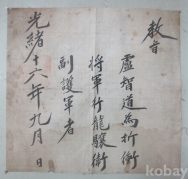 教旨
盧智道為折衝
將軍行龍驤衛
副護軍者
光緒十六年九月 日
kobay